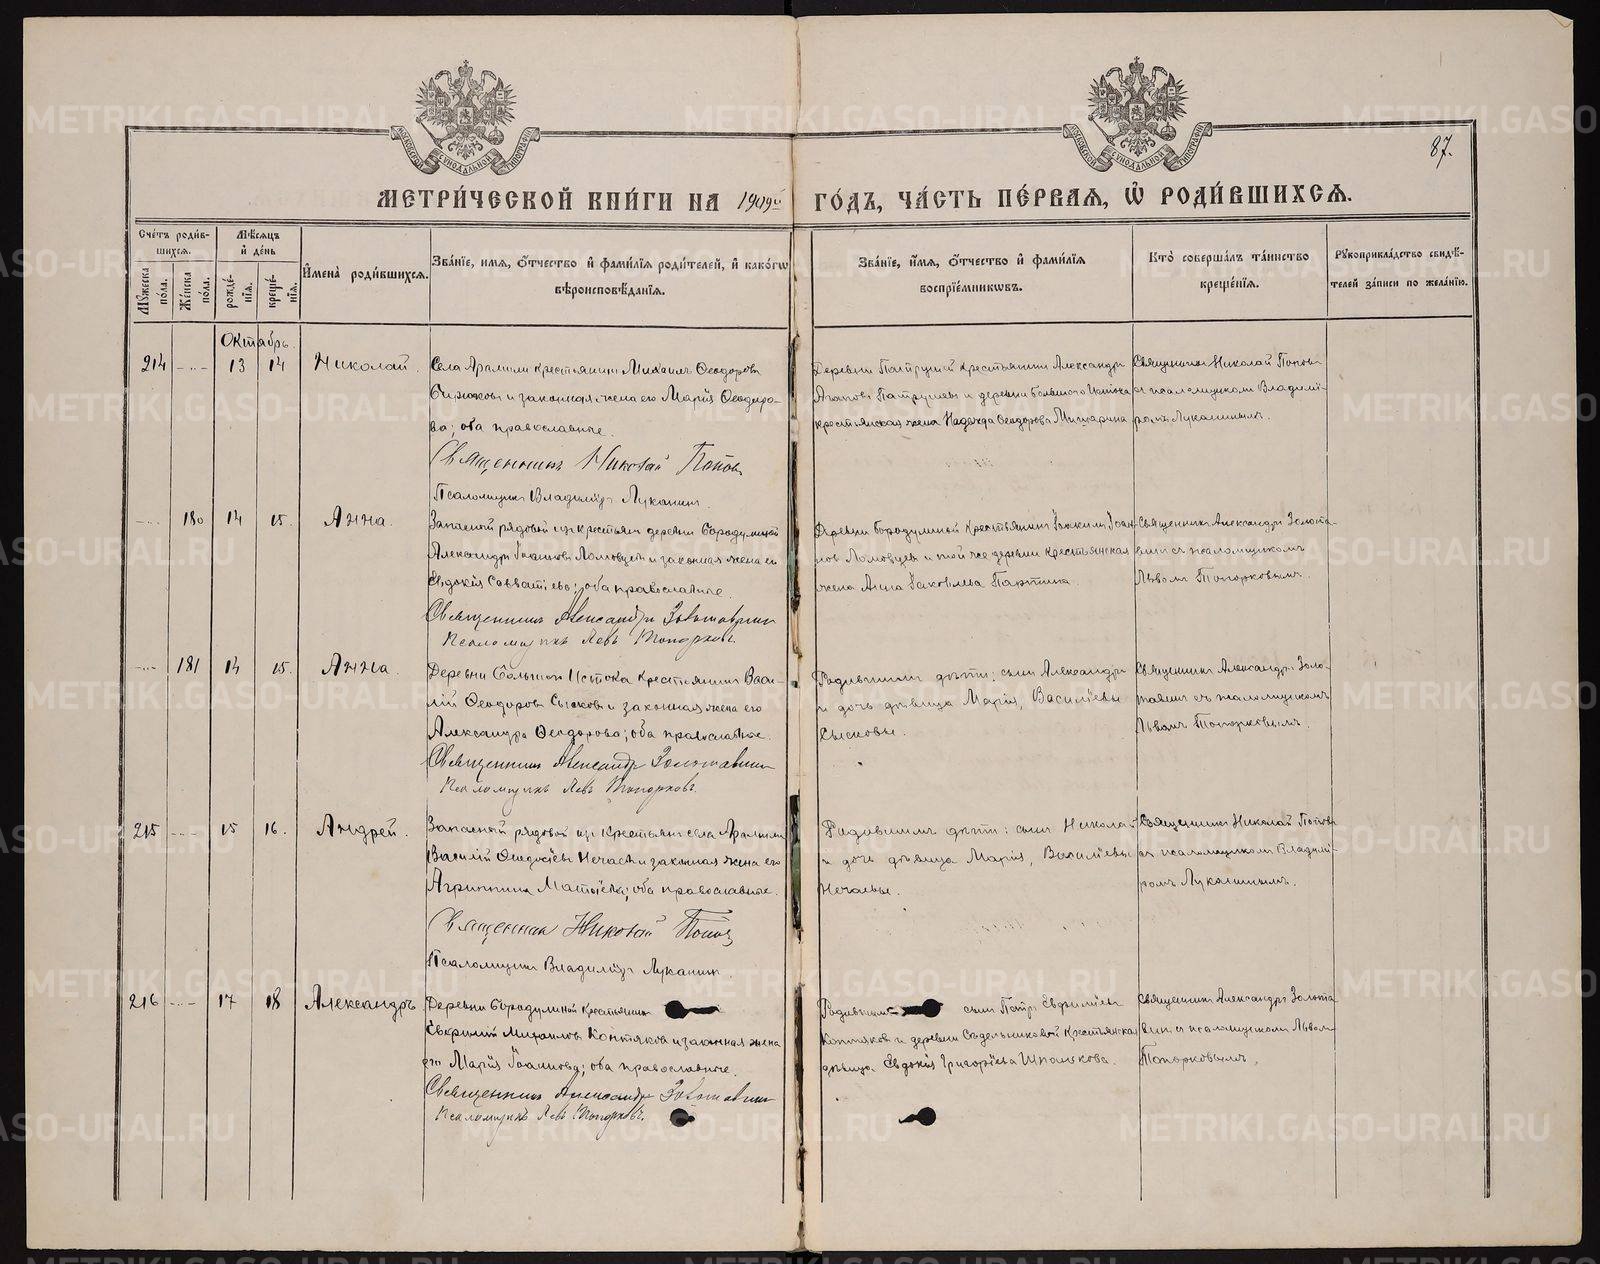 87.
МЕТРИ́ЧЕСКОЙ КНИ́ГИ НА 1909й ГО́ДЪ, ЧА́СТЬ ПЕ́РВАЯ, Ѡ РОДИ́ВШИХСЯ.
Сче́тъ роди́в-
шихся.
Му́жеска по́ла.
Же́нска по́ла.
Мѣ́сяцъ
и́ де́нь
рожде́-
нїя.
креще́-
нїя.
И҆мена̀ роди́вшихся.
Зва́нїе, и́мя, ѻ҆́тчество и҆ фами́лїя роди́телей, и҆ како́гѡ
вѣроисповѣ́данїя.
Зва́нїе, и҆́мя, ѻ҆́тчество и҆ фами́лїя
воспрїе́мниковъ.
Кто̀ соверша́лъ та́инство
креще́нїя.
Рукоприкла́дство свидѣ́-
телей за́писи по жела́нїю.
Октябрь.
214 -..- 13 14 Николай.
Села Арамили крестьянинъ Михаилъ Ѳеодоровъ
и законная жена его Марія Ѳеодоро-
ва; оба православные.
Священникъ Николай Поповъ
Псаломщикъ Владиміръ Луканинъ.
Деревни Патрушей крестьянинъ Александръ
Агаповъ Патрушевъ и деревни Большого Истока
крестьянская жена Надежда Ѳеодорова
Священникъ Николай Поповъ
съ псаломщикомъ Владимі-
ромъ Луканинымъ.
-..- 180 14 15. Анна.
Запасной рядовой изъ крестьянъ деревни Бородулиной
Александръ Іоанновъ Ломовцевъ и законная жена его
Евдокія Савватіева; оба православные.
Священникъ Александръ Золотавинъ
Псаломщикъ Левъ Топорковъ.
Деревни Бородулиной крестьянинъ Іоакимъ Іоан-
новъ Ломовцевъ и той же деревни крестьянская
жена Анна Іаковлева
Священникъ Александръ Золота-
винъ съ псаломщикомъ
Львомъ Топорковымъ.
-..- 181 14 15. Анна.
Деревни Большого Истока крестьянинъ Васи-
лій Ѳеодоровъ Сысковъ и законная жена его
Александра Ѳеодорова; оба православные.
Священникъ Александръ Золотавинъ
Псаломщикъ Левъ Топорковъ.
Родившимъ дѣти: сынъ Александръ
и дочь дѣвица Марія, Васильевы
Сысковы.
Священникъ Александръ Золо-
тавинъ съ псаломщикомъ
Львомъ Топорковымъ.
215 -..- 15 16. Андрей.
Запасный рядовой изъ крестьянъ села Арамили
Василій Ѳеодосіевъ Нечаевъ и законная жена его
Агриппина Матѳіева; оба православные.
Священникъ Николай Поповъ
Псаломщикъ Владиміръ Луканинъ.
Родившимъ дѣти: сынъ Николай
и дочь дѣвица Марія, Васильевы
Нечаевы.
Священникъ Николай Поповъ
съ псаломщикомъ Владимі-
ромъ Луканинымъ.
216 -..- 17 18 Александръ
Деревни Бородулиной крестьянинъ
Евѳимій Михаиловъ Контяковъ и законная жена
его Марія Іоаннова; оба православные.
Священникъ Александръ Золотавинъ
Псаломщикъ Левъ Топорковъ.
Родившимъ сынъ Петръ Евѳиміевъ
Контяковъ и деревни Седельниковой крестьянская
дѣвица Евдокія Григоріева
Священникъ Александръ Золота-
винъ съ псаломщикомъ Львомъ
Топорковымъ.
METRIKI.GASO-URAL.RU